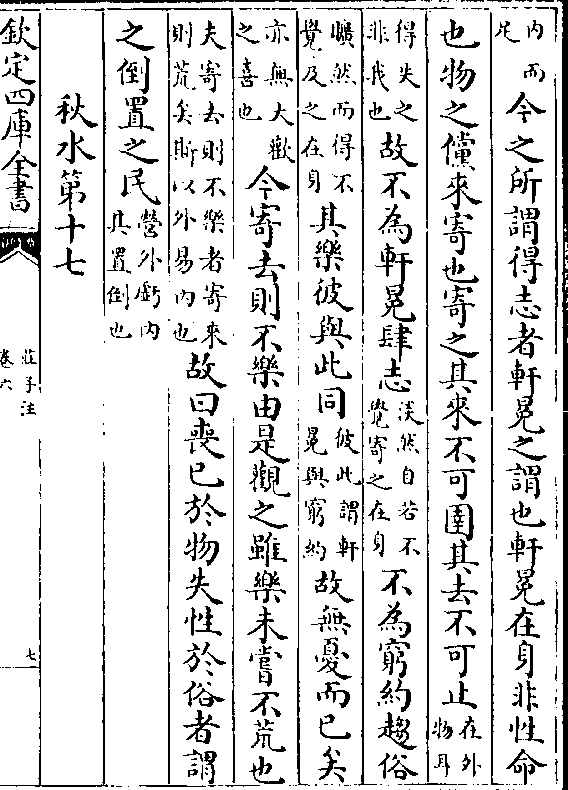 内而足今之所謂得志者軒冕之謂也軒冕在身非性命
也物之儻來寄也寄之其來不可圉其去不可止在外物耳
得失之非我也故不為軒冕肆志淡然自若不覺寄之在身不為窮約趨俗
曠然而得不覺及之在身其樂彼與此同彼此謂軒冕與窮約故無憂而已矣
亦無大歡之喜也今寄去則不樂由是觀之雖樂未嘗不荒也
夫寄去則不樂者寄來則荒矣斯以外易内也故曰喪已於物失性於俗者謂
之倒置之民營外虧内其置倒也
秋水第十七
欽定四庫全書
莊子注
卷六
七